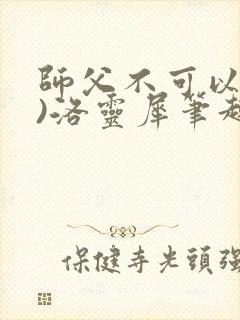 師父不可以
)洛靈犀筆趣
保健寺光頭強